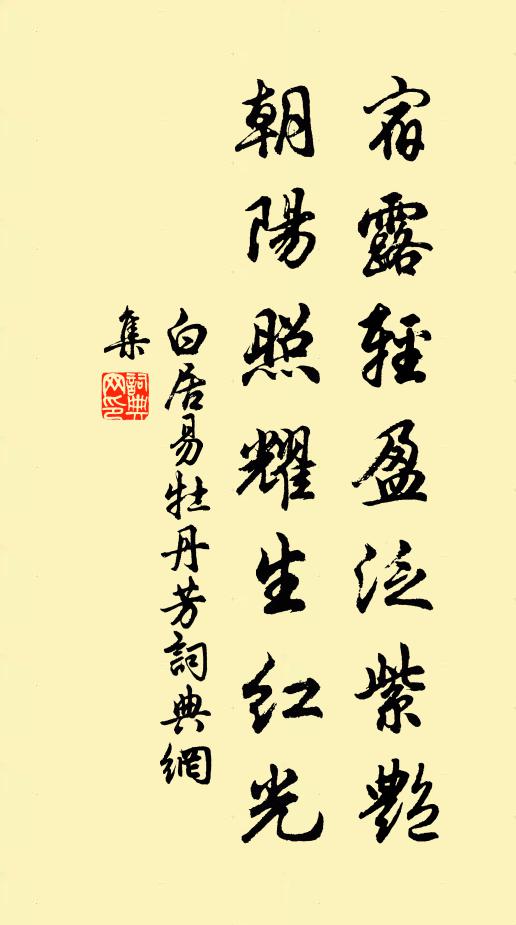 宿露輕盈泛紫艷
朝陽照耀生紅光
白居易牡丹芳詞典網
集
詞典
网印